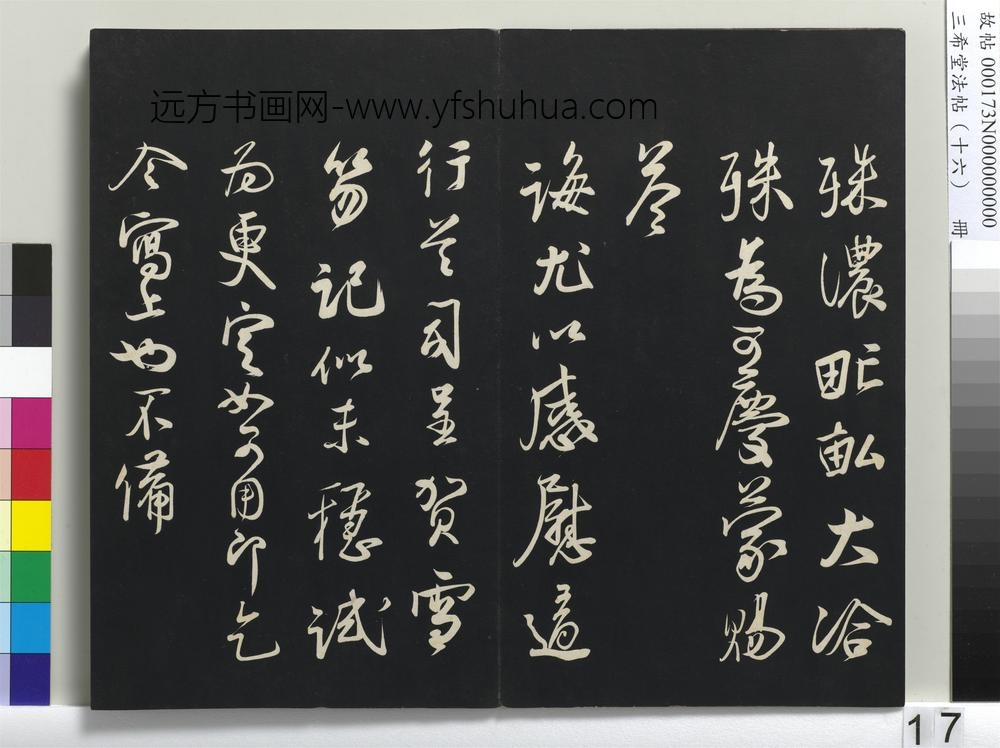 殊濃甿畝大洽
殊為可慶蒙賜
答
誨尤以感慰適
行首司呈賀雪
笏記似未穩試
为更定如可用即乞
令寫上也不備
远方书画网-www.yfshuhua.com
故帖 000173N000000000
三希堂法帖(十六) 冊
17